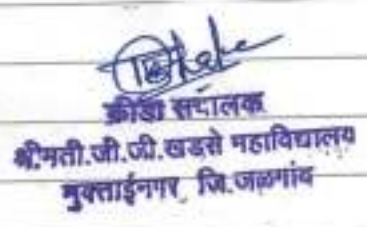 क्रीडा संचालक
श्रीमती.जी.जी.खडसे महाविद्यालय
मुक्ताईनगर जि.जळगांव